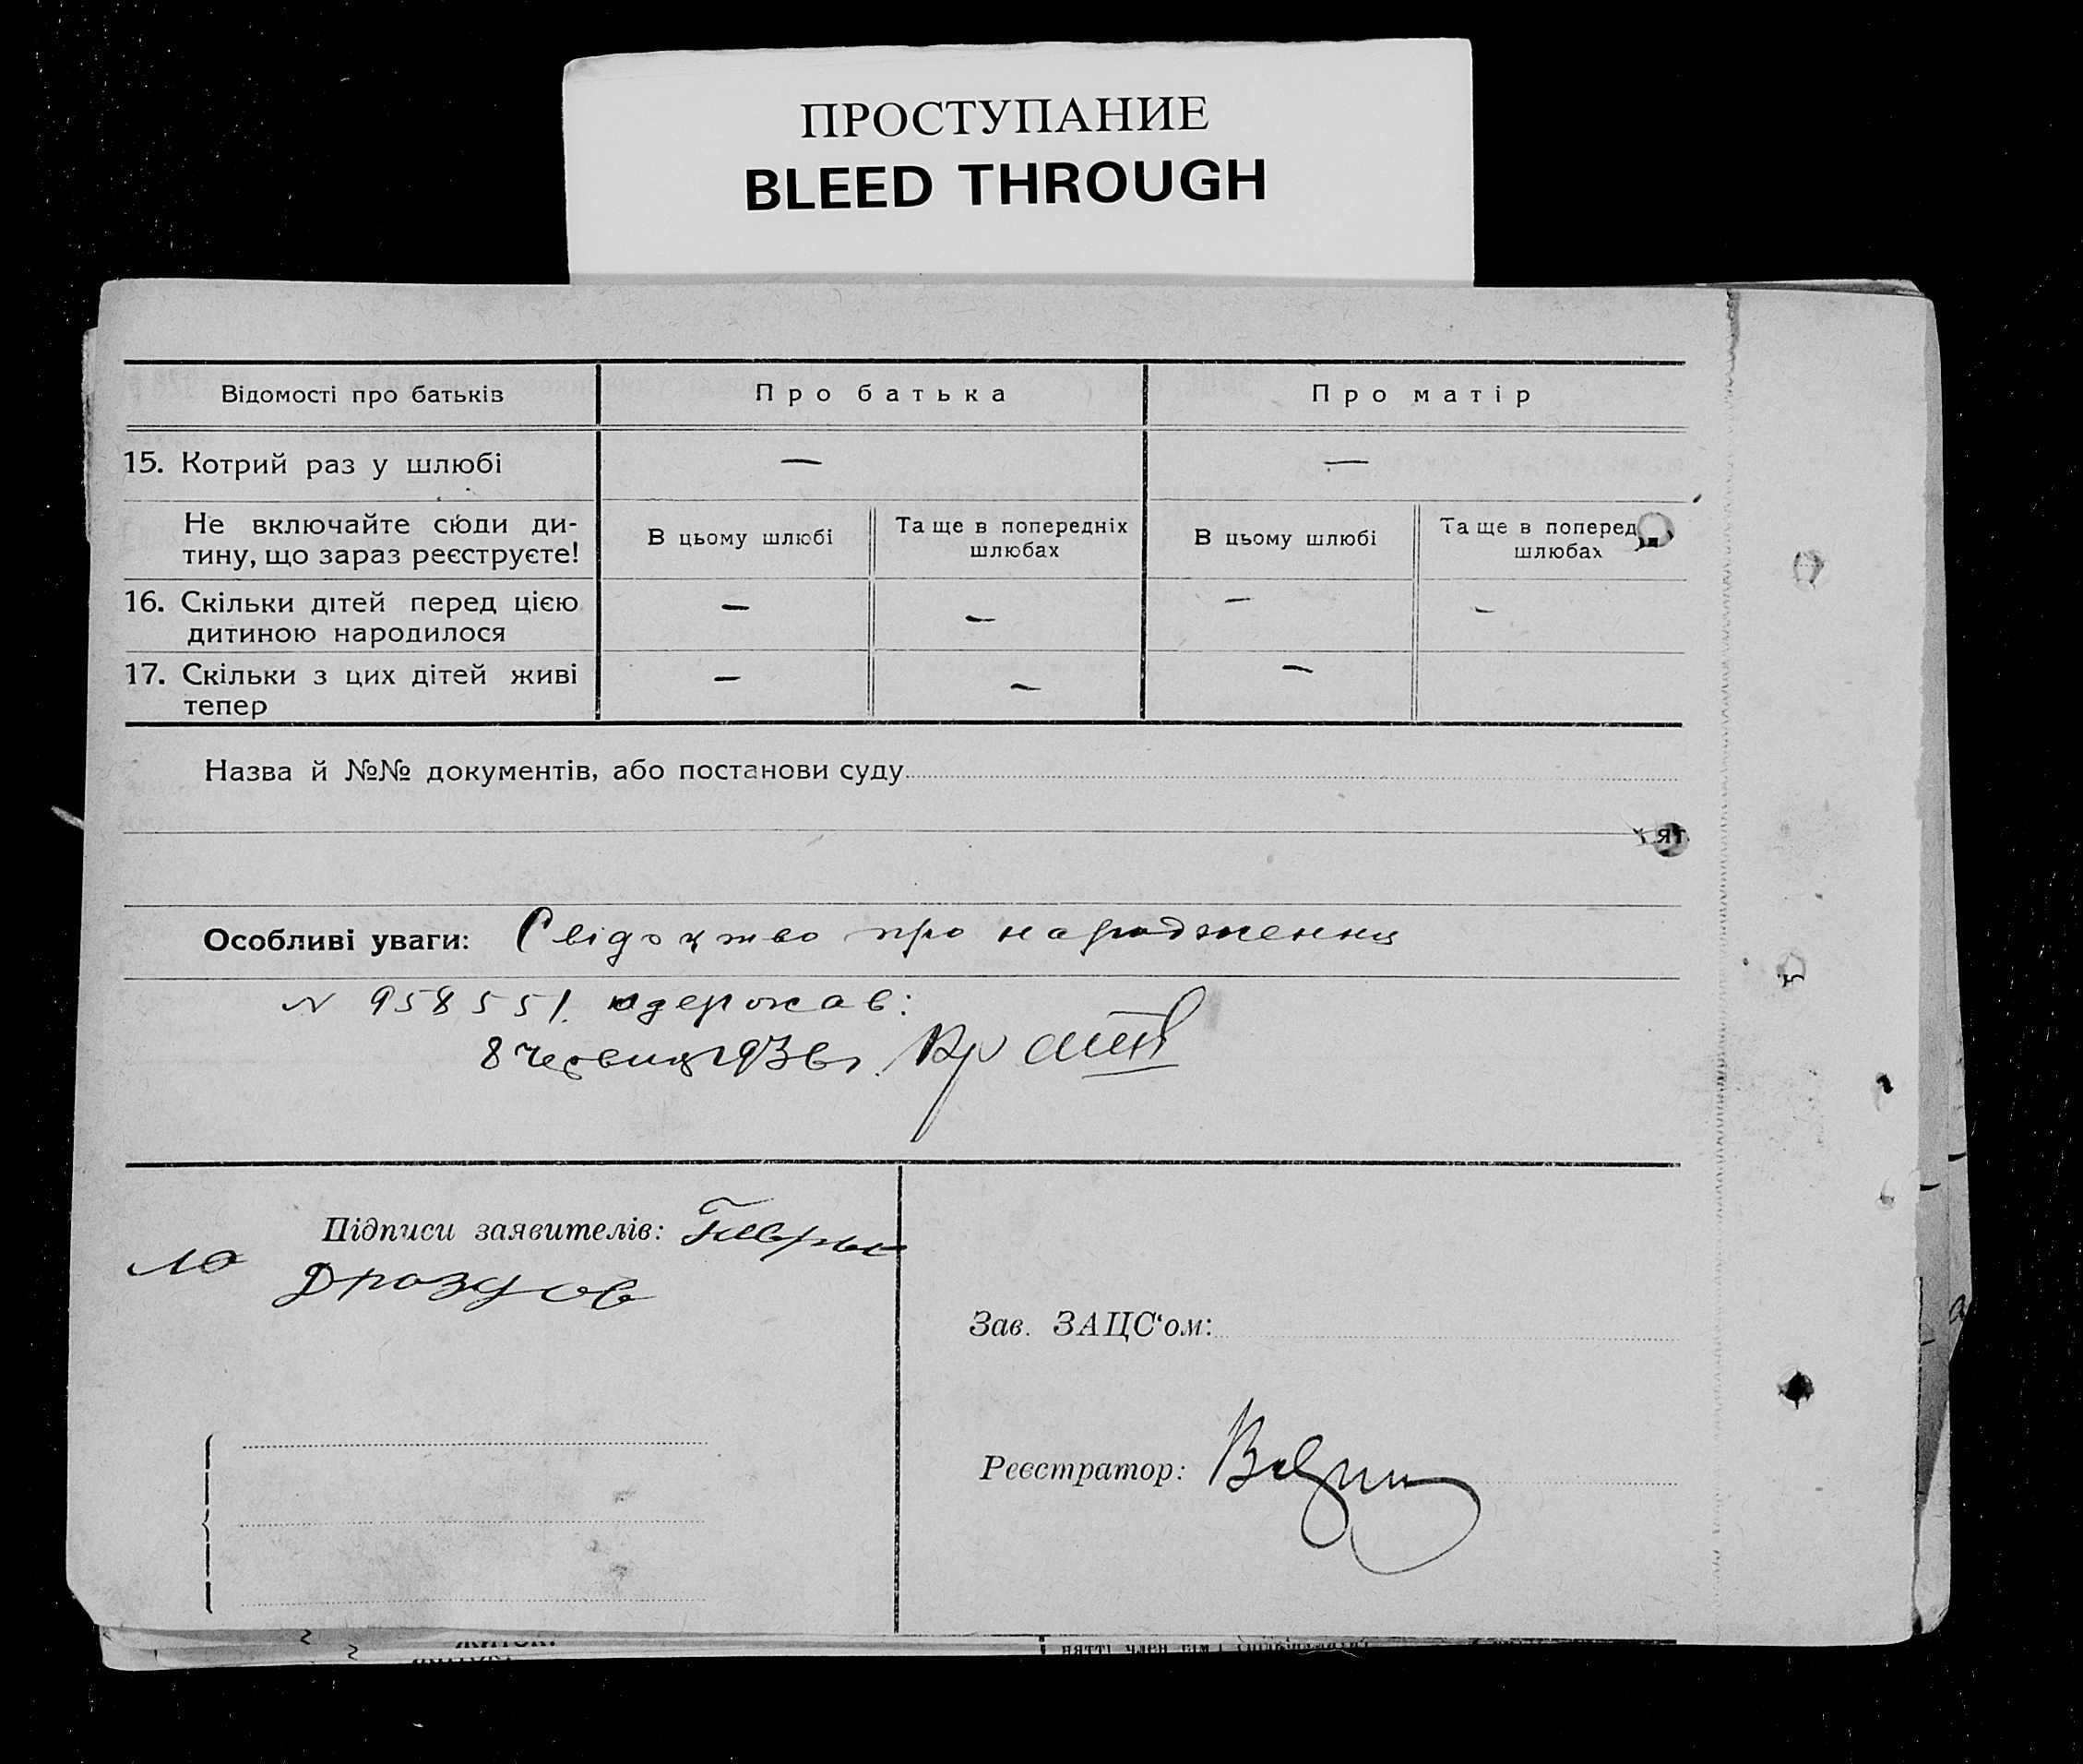 ПРОСТУПАНИЕ
BLEED THROUGH
Відомості про батьків
Про батька
Про матір
15. Котрий раз у шлюбі — —
Не включайте сюди ди-
тину, що зараз реєструєте!
В цьому шлюбі
Та ще в попередніх
шлюбах
В цьому шлюбі
Та ще в поперед
шлюбах
16. Скільки дітей перед цією
дитиною народилося
— — — —
17. Скільки з цих дітей живі
тепер
— — —
Назва й №№ документів, або постанови суду
ят
Особливі уваги: Свідоцтво про народження
N 958551 одержав:
8 червня 1936 г.
Підписи заявителів:
Дроздов
Зав. ЗАЦС‘ом:
Реєстратор: